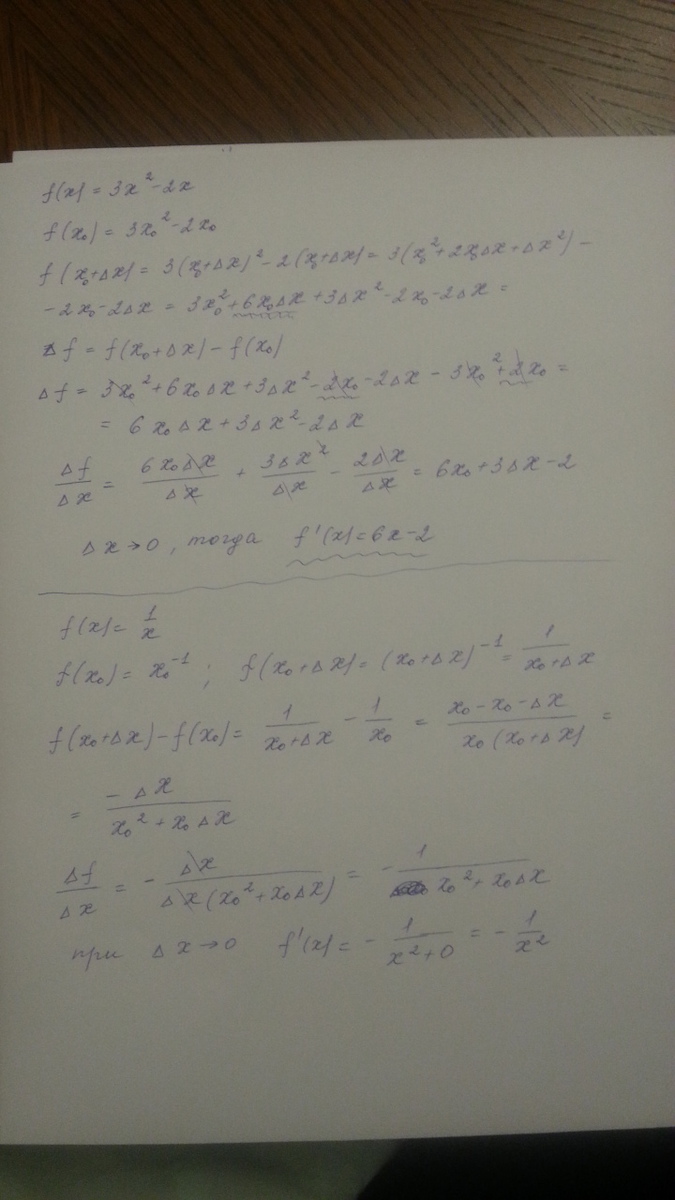 f(x) = 3x² - 2x
f(x₀) = 3x₀² - 2x₀
f(x₀+Δx) = 3(x₀+Δx)² - 2(x₀+Δx) = 3(x₀²+2x₀Δx+Δx²) -
- 2x₀ - 2Δx = 3x₀² + 6x₀Δx + 3Δx² - 2x₀ - 2Δx =
Δf = f(x₀+Δx) - f(x₀)
Δf = 3x₀² + 6x₀Δx + 3Δx² - 2x₀ - 2Δx - 3x₀² + 2x₀ =
= 6x₀Δx + 3Δx² - 2Δx
Δf/Δx = 6x₀Δx/Δx + 3Δx²/Δx - 2Δx/Δx = 6x₀ + 3Δx - 2
Δx→0, тогда f'(x) = 6x - 2
f(x) = 1/x
f(x₀) = x₀⁻¹ ; f(x₀+Δx) = (x₀+Δx)⁻¹ = 1/(x₀+Δx)
f(x₀+Δx) - f(x₀) = 1/(x₀+Δx) - 1/x₀ = (x₀-x₀-Δx)/(x₀(x₀+Δx)) =
= -Δx/(x₀²+x₀Δx)
Δf/Δx = - Δx/(Δx(x₀²+x₀Δx)) = - 1/(x₀²+x₀Δx)
при Δx→0 f'(x) = - 1/(x²+0) = - 1/x²